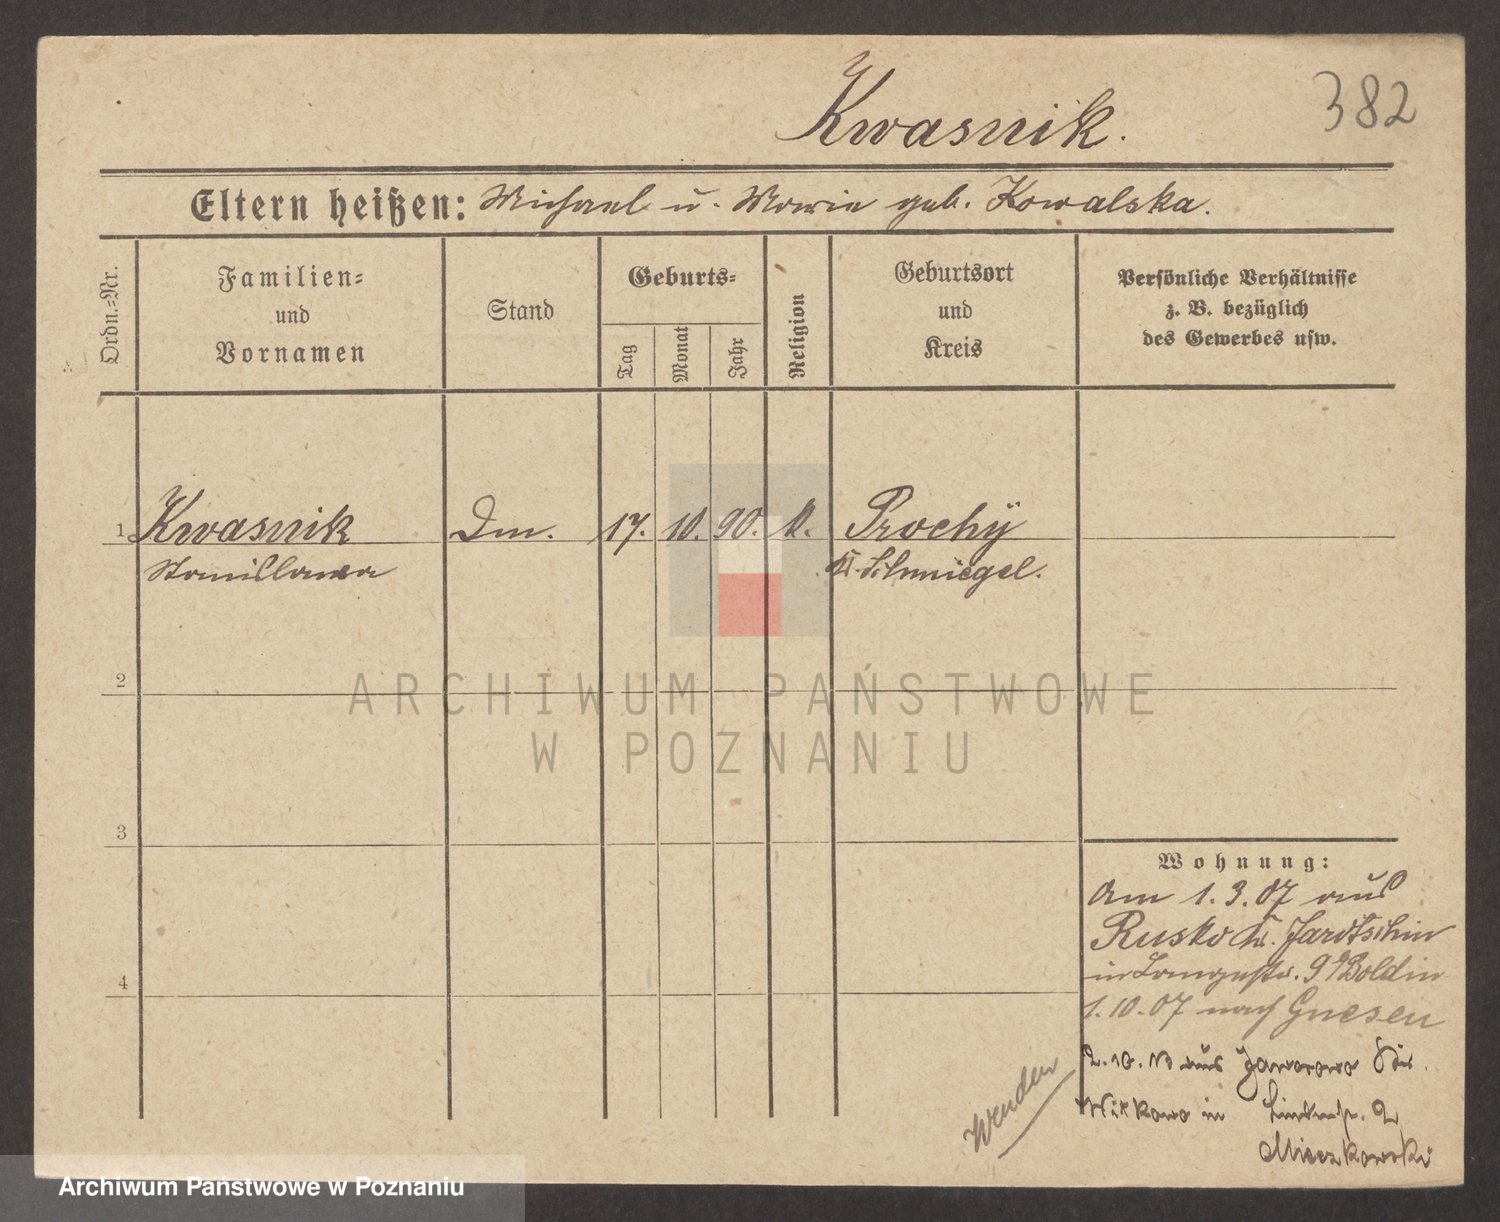 Kwasnik.
382
Eltern heißen: Michael u. Marie geb. Kowalska.
Ordn.=Nr.
Familien=
und
Vornamen
Stand
Geburts=
Tag
Monat
Jahr
Religion
Geburtsort
und
Kreis
Persönliche Verhältnisse
z. B. bezüglich
des Gewerbes usw.
1 Kwasnik Dm. 17. 10. 90. k. Prochÿ
Stanislawa Kr. Schmiegel.
2
3
4
Wohnung:
Am 1.3.07 aus
Rusko Kr. Jarotschin
in 9 Boldin
1.10.07 nach Gnesen
2.10. aus Jaworowo
Witkowo in 2
Mieczkowski
Wenden
ARCHIWUM PAŃSTWOWE
W POZNANIU
Archiwum Państwowe w Poznaniu